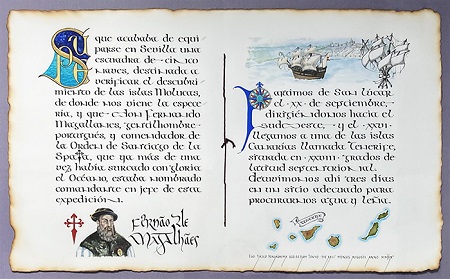 Se que acababa de equi
parse en Sevilla una
escuadra de cinco
naves, destinada a
verificar el descubri
miento de las islas Molucas,
de donde nos viene la espece
ría, y que Don Fernando
Magallanes, gentilhombre
portugués, y comendador de
la Orden de Santiago de la
Spata, que ya más de una
vez había surcado con gloria
el Océano, estaba nombrado
comandante en jefe de esta
expedición.
Fernão de
Magalhães
Partimos de San Lúcar
el xx de septiembre,
dirigiéndonos hacia el
sudoeste, y el xxvi
llegamos a una de las islas
Canarias llamada Tenerife,
situada en xxviii grados de
latitud septentrional.
Detuvimos ahí tres días
en un sitio adecuado para
procurarnos agua y leña.
Tenerife